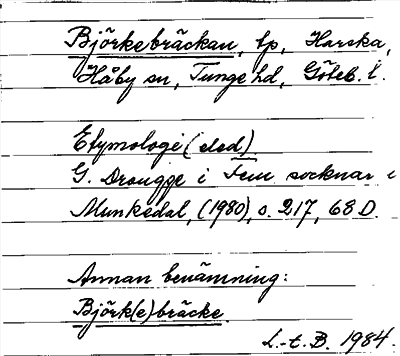 Björkebräckan, tp, Harska,
Håby sn, Tunge hd, Göteb. l.
Etymologi (eled)
G. Drougge i Fem socknar i
Munkedal, (1980), s. 217, 68 D.
Annan benämning:
Björk(e)bräcke.
L.-t. B. 1984.